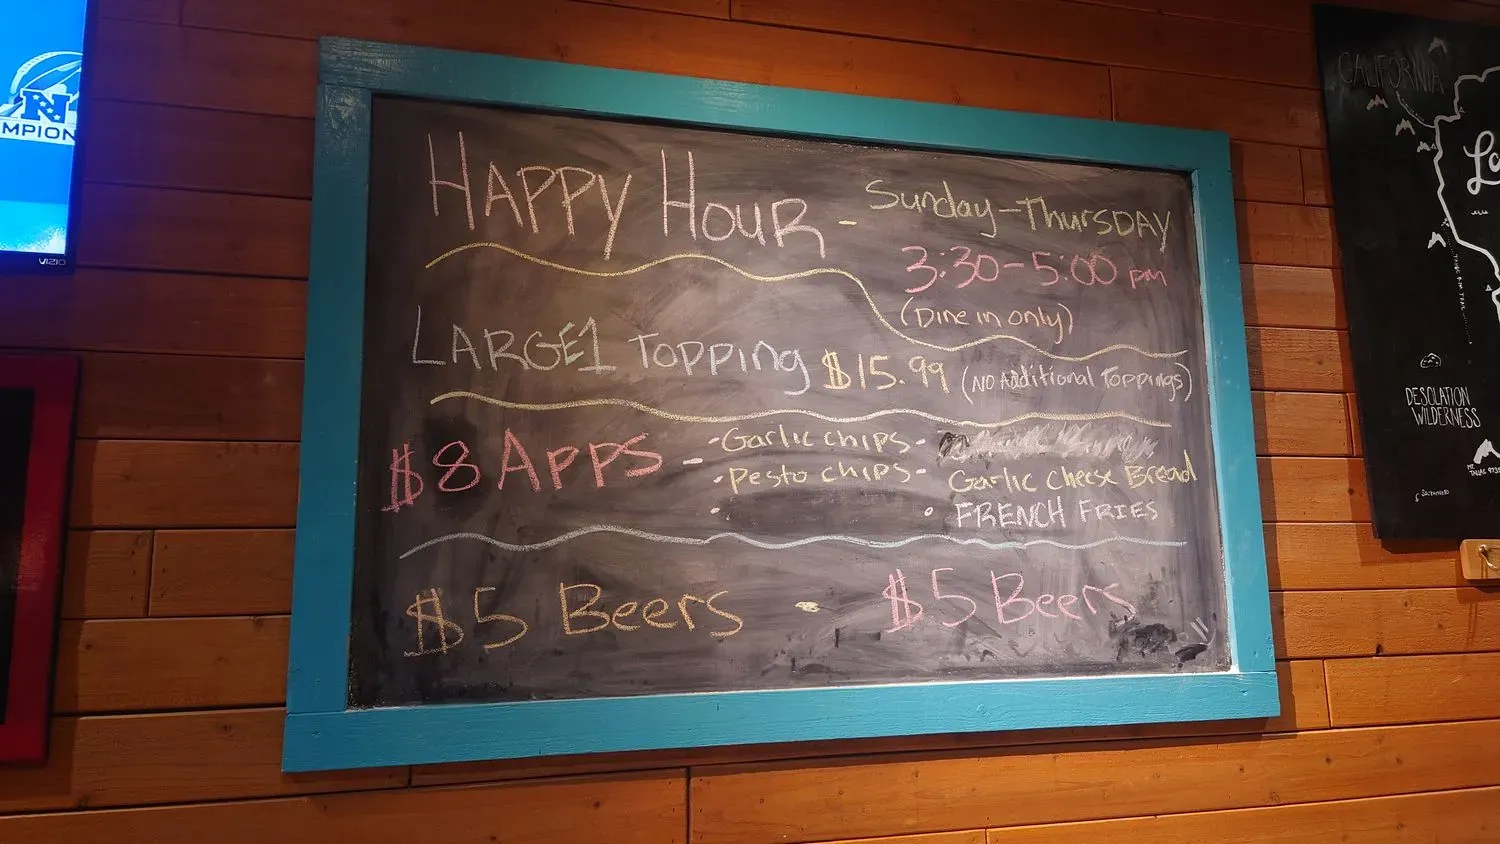 MPION
VIZIO
HAPPY HOUR - Sunday-THURSDAY
3:30-5:00 pm
(Dine in only)
LARGE 1 TOPPING $15.99 (NO Additional Toppings)
$8 APPS - • Garlic chips •
• Pesto chips • Garlic cheese Bread
• • FRENCH FRIES
$5 Beers - $5 Beers
CALIFORNIA
DESOLATION
WILDERNESS